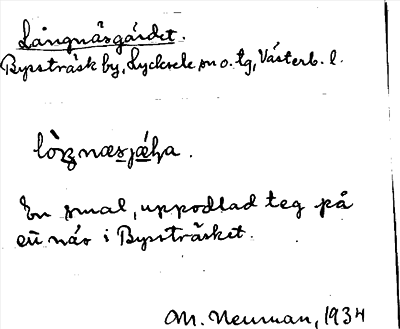 Långnäsgärdet.
Bysträsk by, Lycksele sn o. tg, Västerb. l.
En smal, uppodlad teg på
en näs i Bysträsket.
M. Neuman, 1934